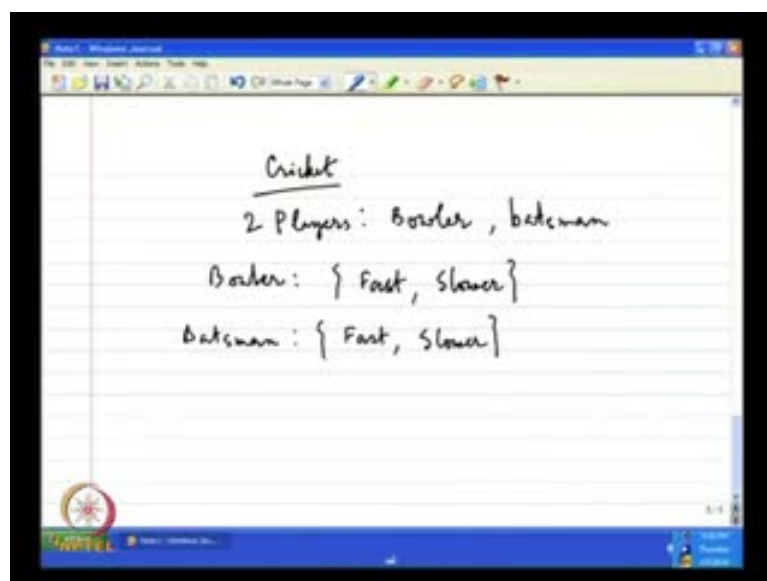 Note1 - Windows Journal
File Edit View Insert Actions Tools Help
Cricket
2 Players: Bowler, batsman
Bowler: { Fast, Slower}
Batsman: { Fast, Slower}
NPTEL